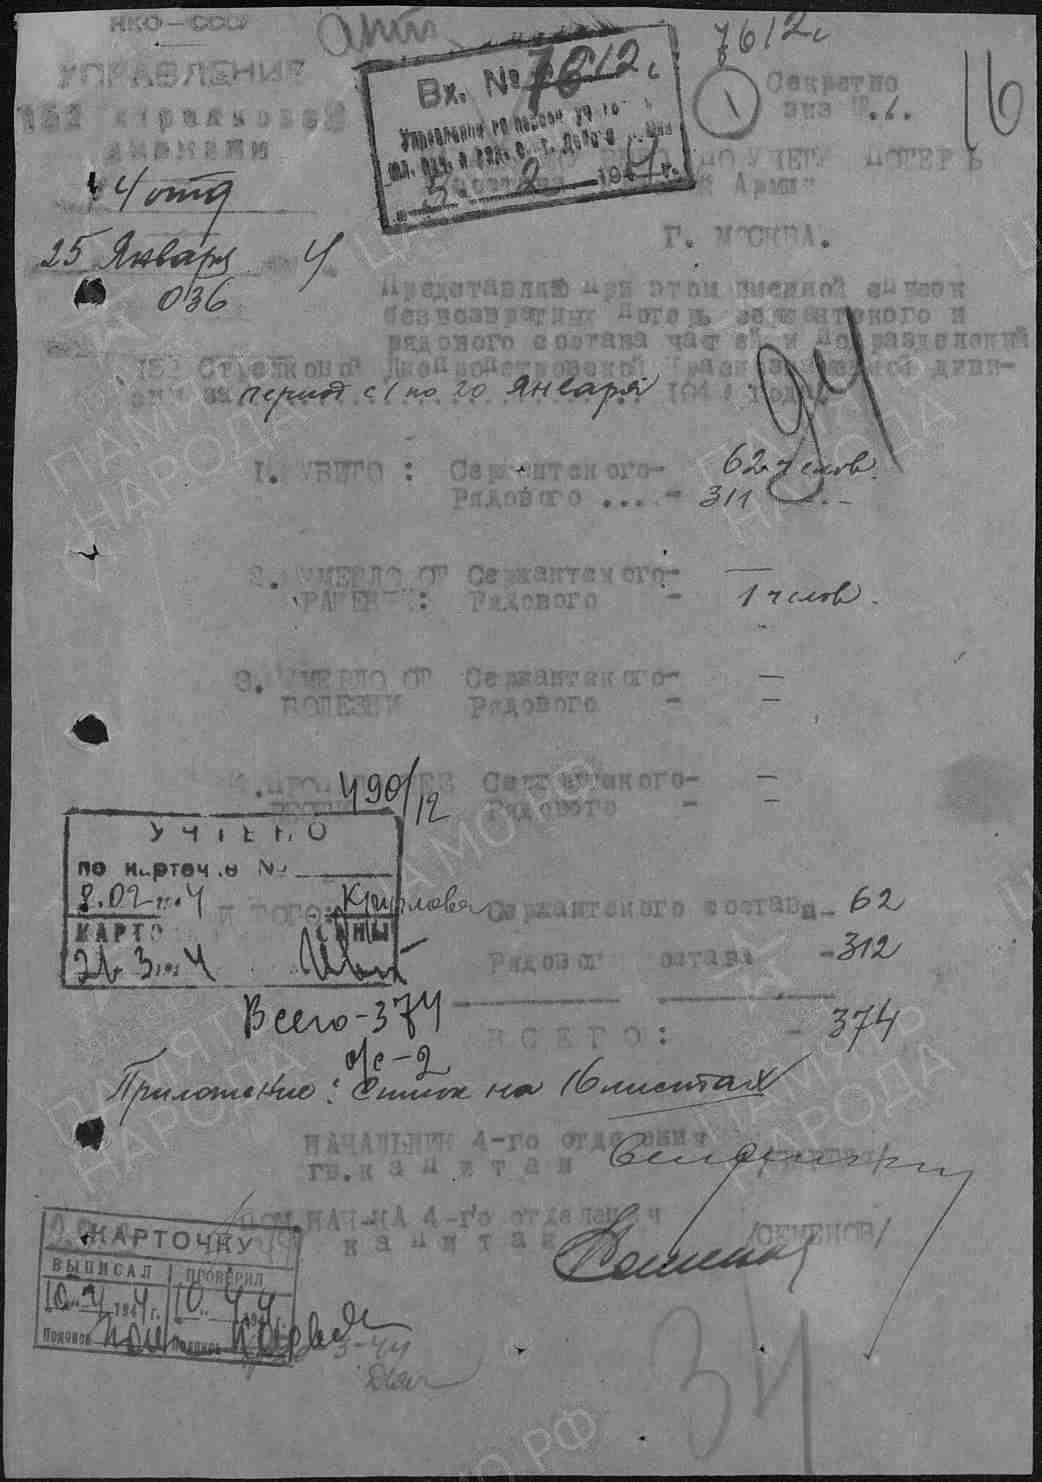 НКО-СССР
УПРАВЛЕНИЕ
152 стрелковой
дивизии
4 отд
25 Января 4
036
7612с
Вх. № 7612с
Управление по персон. учету
5 2 1944 г.
1
Секретно
экз №1.
16
ПО УЧЕТУ ПОТЕРЬ
Армии
г. МОСКВА.
Представляю при этом именной список
безвозвратных потерь сержантского и
рядового состава частей и подразделений
152 Стрелковой Днепропетровской Краснознаменной диви-
зии за период с 1 по 20 Января 1944 года.
94
1. УБИТО : Сержантского- 62 челов.
Рядового ....- 311 -"-
2. УМЕРЛО ОТ Сержантского- —
РАНЕНИЙ: Рядового - 1 челов.
3. УМЕРЛО ОТ Сержантского- —
БОЛЕЗНИ Рядового - —
4. Сержантского- —
Рядового - —
490/12
УЧТЕНО
по карточке №
8.02 1944 Крылова
КАРТО
ИТОГО: Сержантского состава- 62
Рядового состава -312
Всего-374
о/с-2
ВСЕГО: - 374
Приложение: Список на 16 листах
НАЧАЛЬНИК 4-го отделения
гв. капитан
ПОМ.НАЧ-КА 4-го отделения
капитан /СЕМЕНОВ/
КАРТОЧКУ
ВЫПИСАЛ ПРОВЕРИЛ
10 4 1944 г. 10 4 1944 г.
Подпись Подпись
34
ПАМЯТЬ НАРОДА
ЦАМО РФ